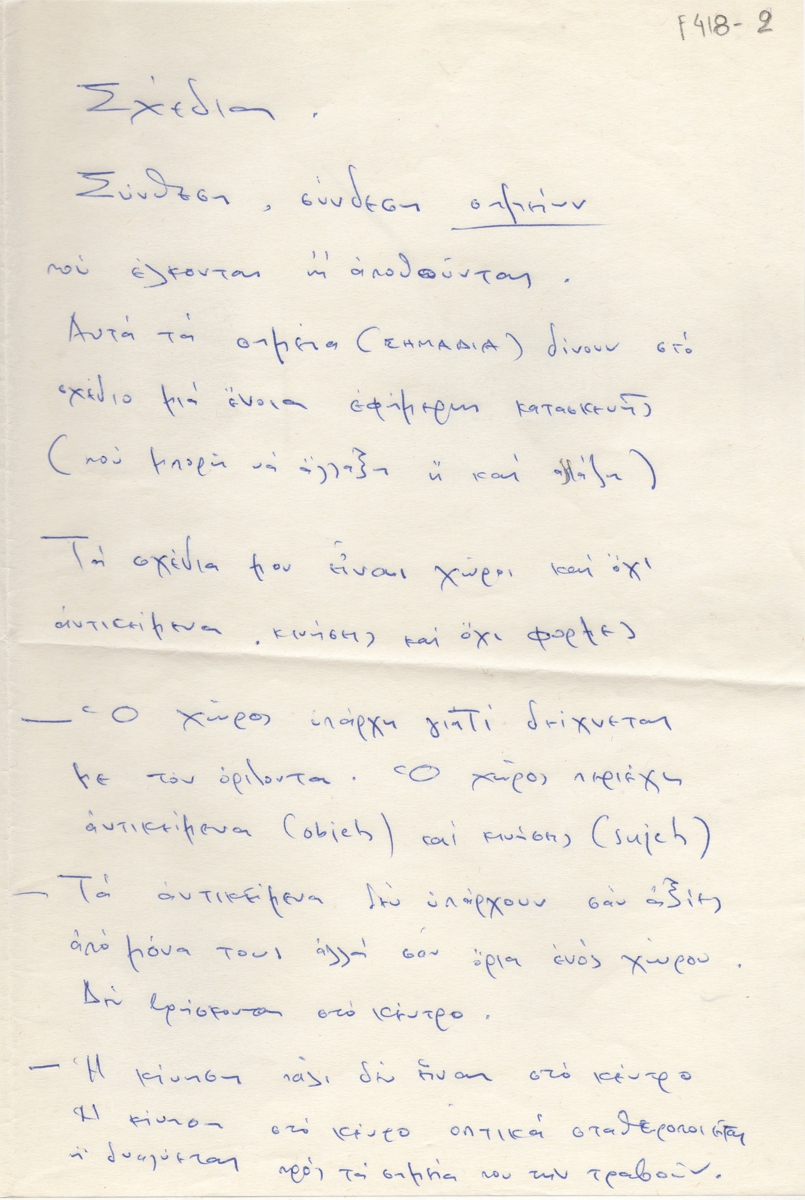 F418-2
Σχέδια.
Σύνθεση, σύνδεση σημείων
πού ἕλκονται ἤ ἀπωθοῦνται.
Αυτά τά σημεία (ΣΗΜΑΔΙΑ) δίνουν στό
σχέδιο μιά ἔνοια εφήμερης κατασκευῆς
(πού μπορεῖ νά ἄλλαξη ἤ και αλλάξη)
Τά σχέδια μου εἶναι χῶροι και ὄχι
ἀντικείμενα, κινήσης καί ὄχι φορμες
— Ὁ χῶρος ὑπάρχη γιατί δείχνεται
με τον ὁρίζοντα. Ὁ χῶρος περιέχη
ἀντικείμενα (objets) καί κινήσης (sujets)
— Τά ἀντικείμενα δέν ὑπάρχουν σάν ἀξίες
ἀπό μόνα τους ἀλλά σάν ὅρια ἑνός χώρου.
Δέν βρίσκονται στό κέντρο.
— Ἡ κίνηση πάλι δέν εἶναι στό κέντρο
Ἡ κίνηση στό κέντρο ὀπτικά σταθεροποιεῖται
ἤ διαλύεται πρός τά σημεία που την τραβοῦν.